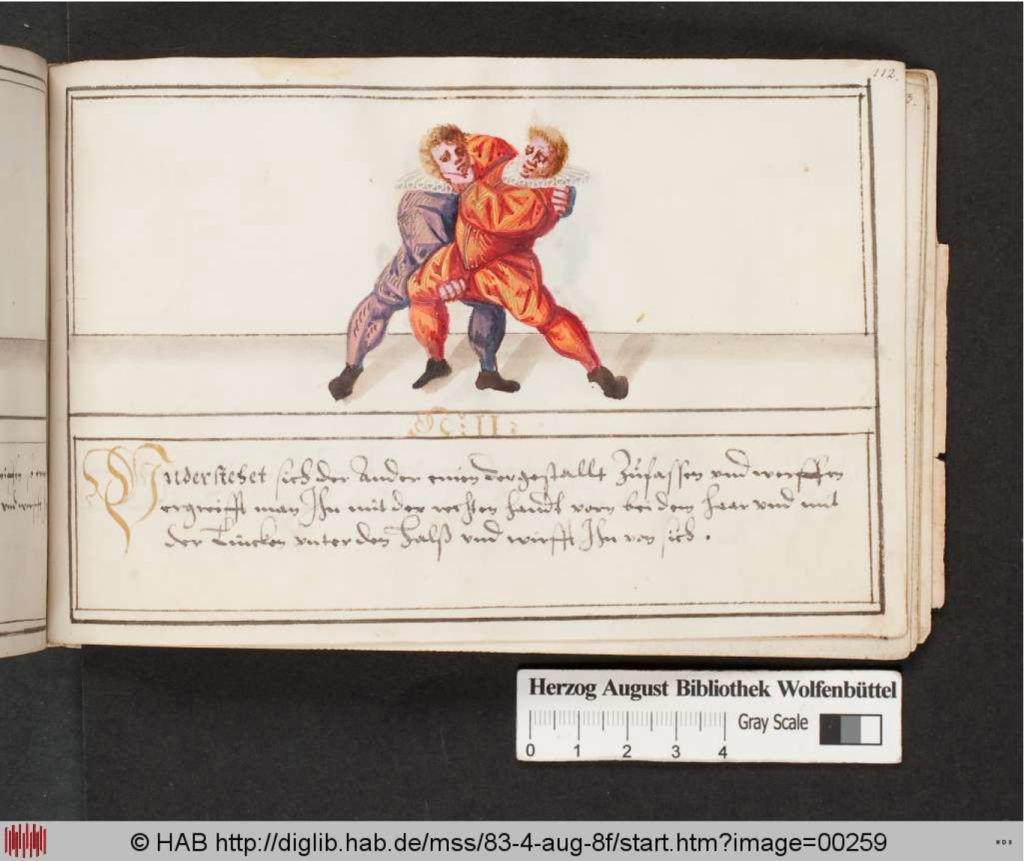 112.
3.
XC:II:
Understehet sich der Ander einen dergestallt Zufassen und werffen
ergreifft man Ihn mit der rechten handt vorn bei dem haar und mit
der Lincken unter den Halß und wirfft Ihn von sich.
Herzog August Bibliothek Wolfenbüttel
Gray Scale
0 1 2 3 4
© HAB http://diglib.hab.de/mss/83-4-aug-8f/start.htm?image=00259